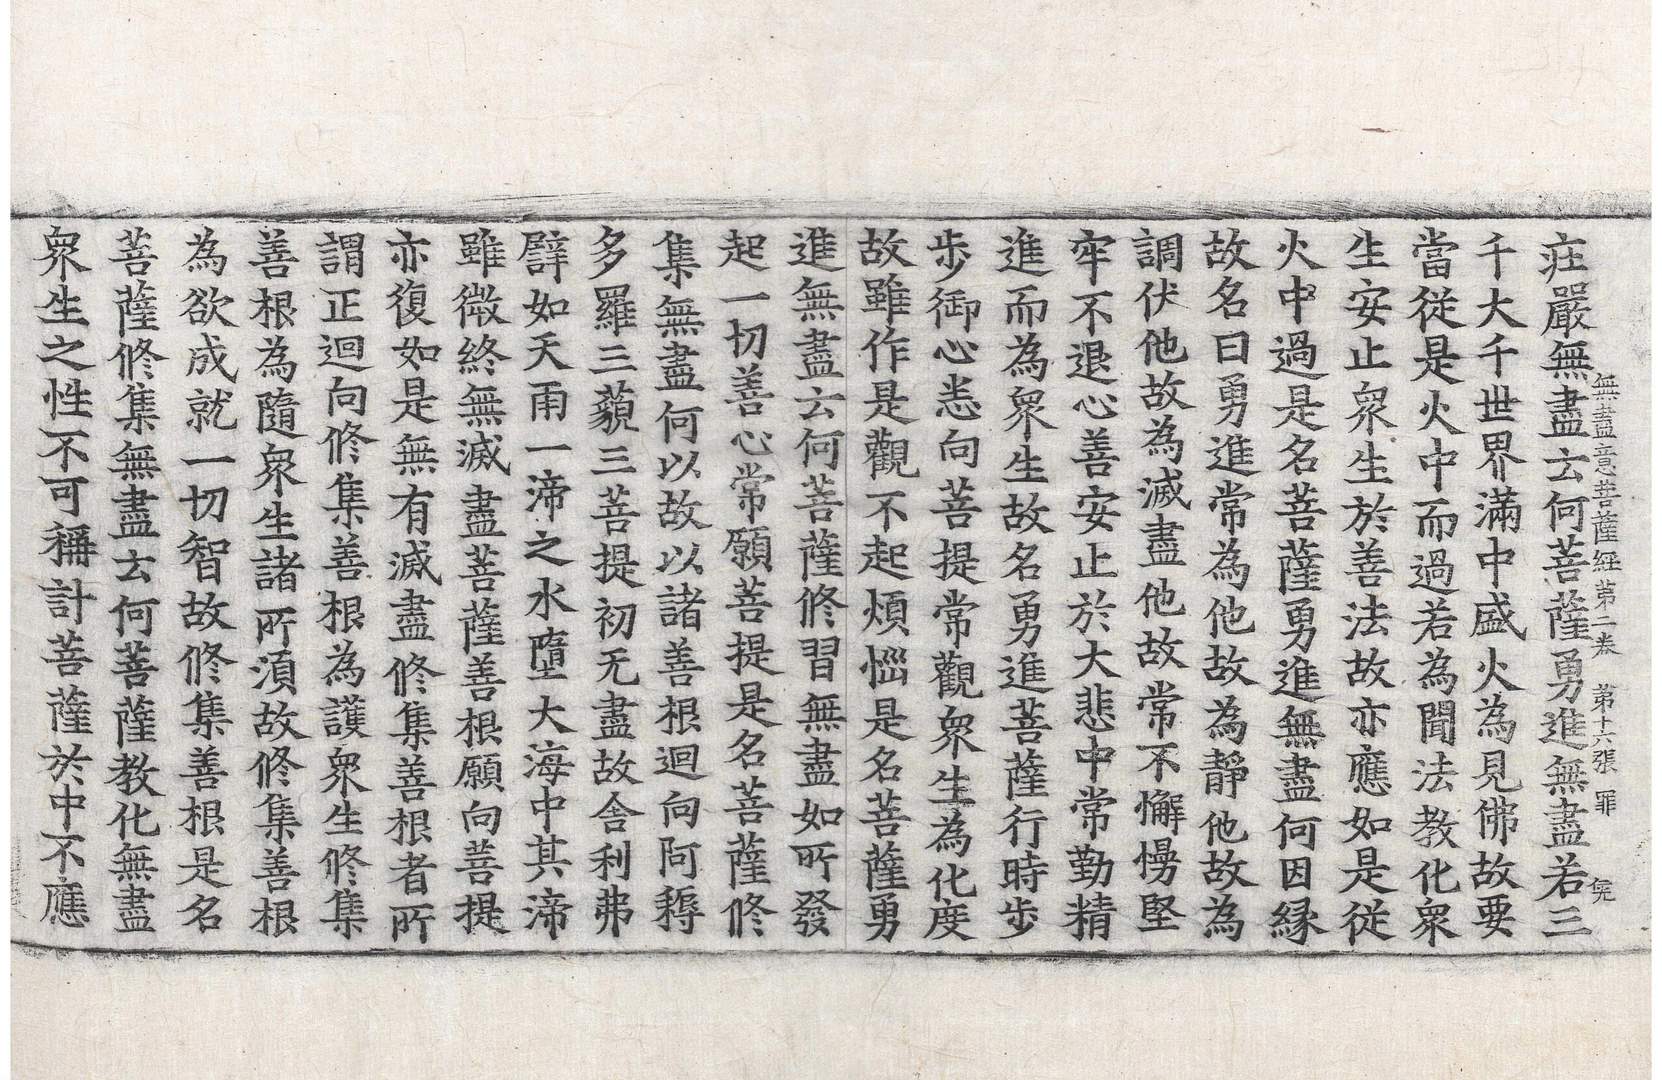 無盡意菩薩經第二卷　第十六張　罪　宪
㽵嚴無盡云何菩薩勇進無盡若三
千大千世界滿中盛火為見佛故要
當從是火中而過若為聞法教化衆
生安止衆生於善法故亦應如是從
火中過是名菩薩勇進無盡何因縁
故名曰勇進常為他故為靜他故為
調伏他故為滅盡他故常不懈慢堅
牢不退心善安止於大悲中常勤精
進而為衆生故名勇進菩薩行時步
步御心恙向菩提常觀衆生為化度
故雖作是觀不起煩惱是名菩薩勇
進無盡云何菩薩修習無盡如所發
起一切善心常願菩提是名菩薩修
集無盡何以故以諸善根迴向阿耨
多羅三藐三菩提初无盡故舍利弗
譬如天雨一渧之水墮大海中其渧
雖微終無滅盡菩薩善根願向菩提
亦復如是無有滅盡修集善根者所
謂正迴向修集善根為護衆生修集
善根為隨衆生諸所湏故修集善根
為欲成就一切智故修集善根是名
菩薩修集無盡云何菩薩教化無盡
衆生之性不可稱計菩薩於中不應